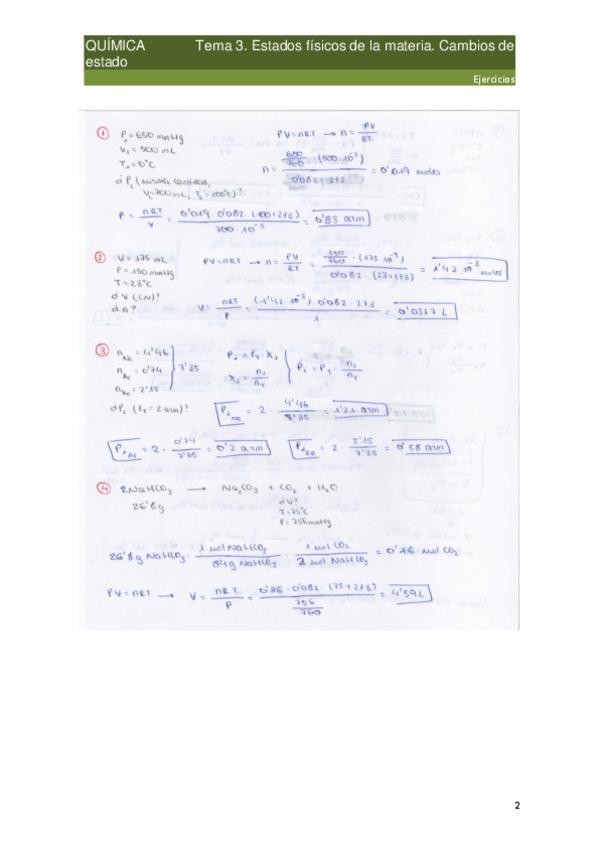 QUÍMICA Tema 3. Estados físicos de la materia. Cambios de
estado
Ejercicios
① P₁ = 650 mmHg
V₁ = 500 mL
T₁ = 0°C
PV = nRT → n = PV/RT
n = 650/760 · (500·10⁻³) / 0'082 · 273 = 0'019 moles
¿P₂ (misma cantidad,
V₂ = 700 mL, T₂ = 100°C)?
P = nRT/V = 0'019 · 0'082 · (100+273) / 700·10⁻³ = 0'83 atm
② V = 175 mL
P = 150 mmHg
T = 23°C
¿V (CN)?
¿n?
PV = nRT → n = PV/RT = 150/760 · (175·10⁻³) / 0'082 · (23+273) = 1'42·10⁻³ moles
V = nRT/P = (1'42·10⁻³) · 0'082 · 273 / 1 = 0'0317 L
③ nNe = 4'46
nAr = 0'74
nXe = 2'15
7'35
Pᵢ = PT · Xᵢ
Xᵢ = nᵢ/nT
Pᵢ = PT · nᵢ/nT
¿Pᵢ (PT = 2 atm)?
PᵢNe = 2 · 4'46/7'35 = 1'21 atm
PᵢAr = 2 · 0'74/7'35 = 0'2 atm
PᵢXe = 2 · 2'15/7'35 = 0'58 atm
④ 2NaHCO₃ → Na₂CO₃ + CO₂ + H₂O
26'8g
¿V?
T = 75°C
P = 756 mmHg
26'8g NaHCO₃ · 1 mol NaHCO₃/84g NaHCO₃ · 1 mol CO₂/2 mol NaHCO₃ = 0'16 mol CO₂
PV = nRT → V = nRT/P = 0'16 · 0'082 · (75+273) / 756/760 = 4'59L
2